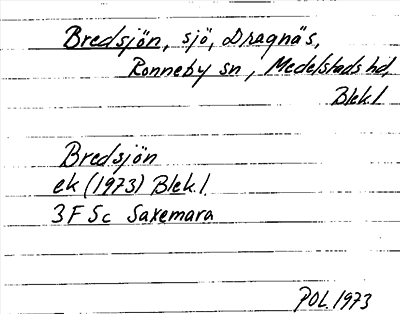 Bredsjön, sjö, Dragnäs,
Ronneby sn, Medelstads hd,
Blek.l
Bredsjön
ek (1973) Blek.l.
3F 5c Saxemara
POL 1973